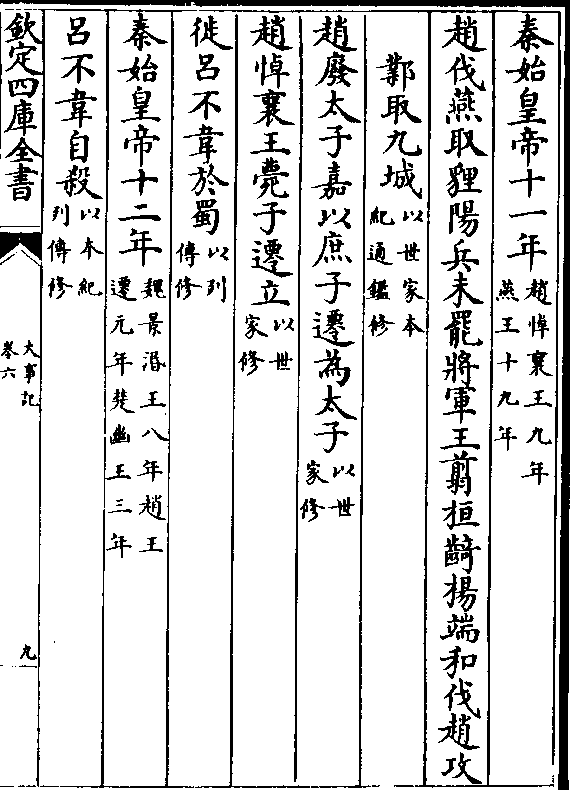 秦始皇帝十一年趙悼襄王九年燕王十九年
趙伐燕取貍陽兵未罷將軍王翦桓齮楊端和伐趙攻
鄴取九城以世家本紀通鑑修
趙廢太子嘉以庶子遷為太子以世家修
趙悼襄王薨子遷立以世家修
徙呂不韋於蜀以列傳修
秦始皇帝十二年魏景湣王八年趙王遷元年楚幽王三年
呂不韋自殺以本紀列傳修
欽定四庫全書
大事記
卷六
九